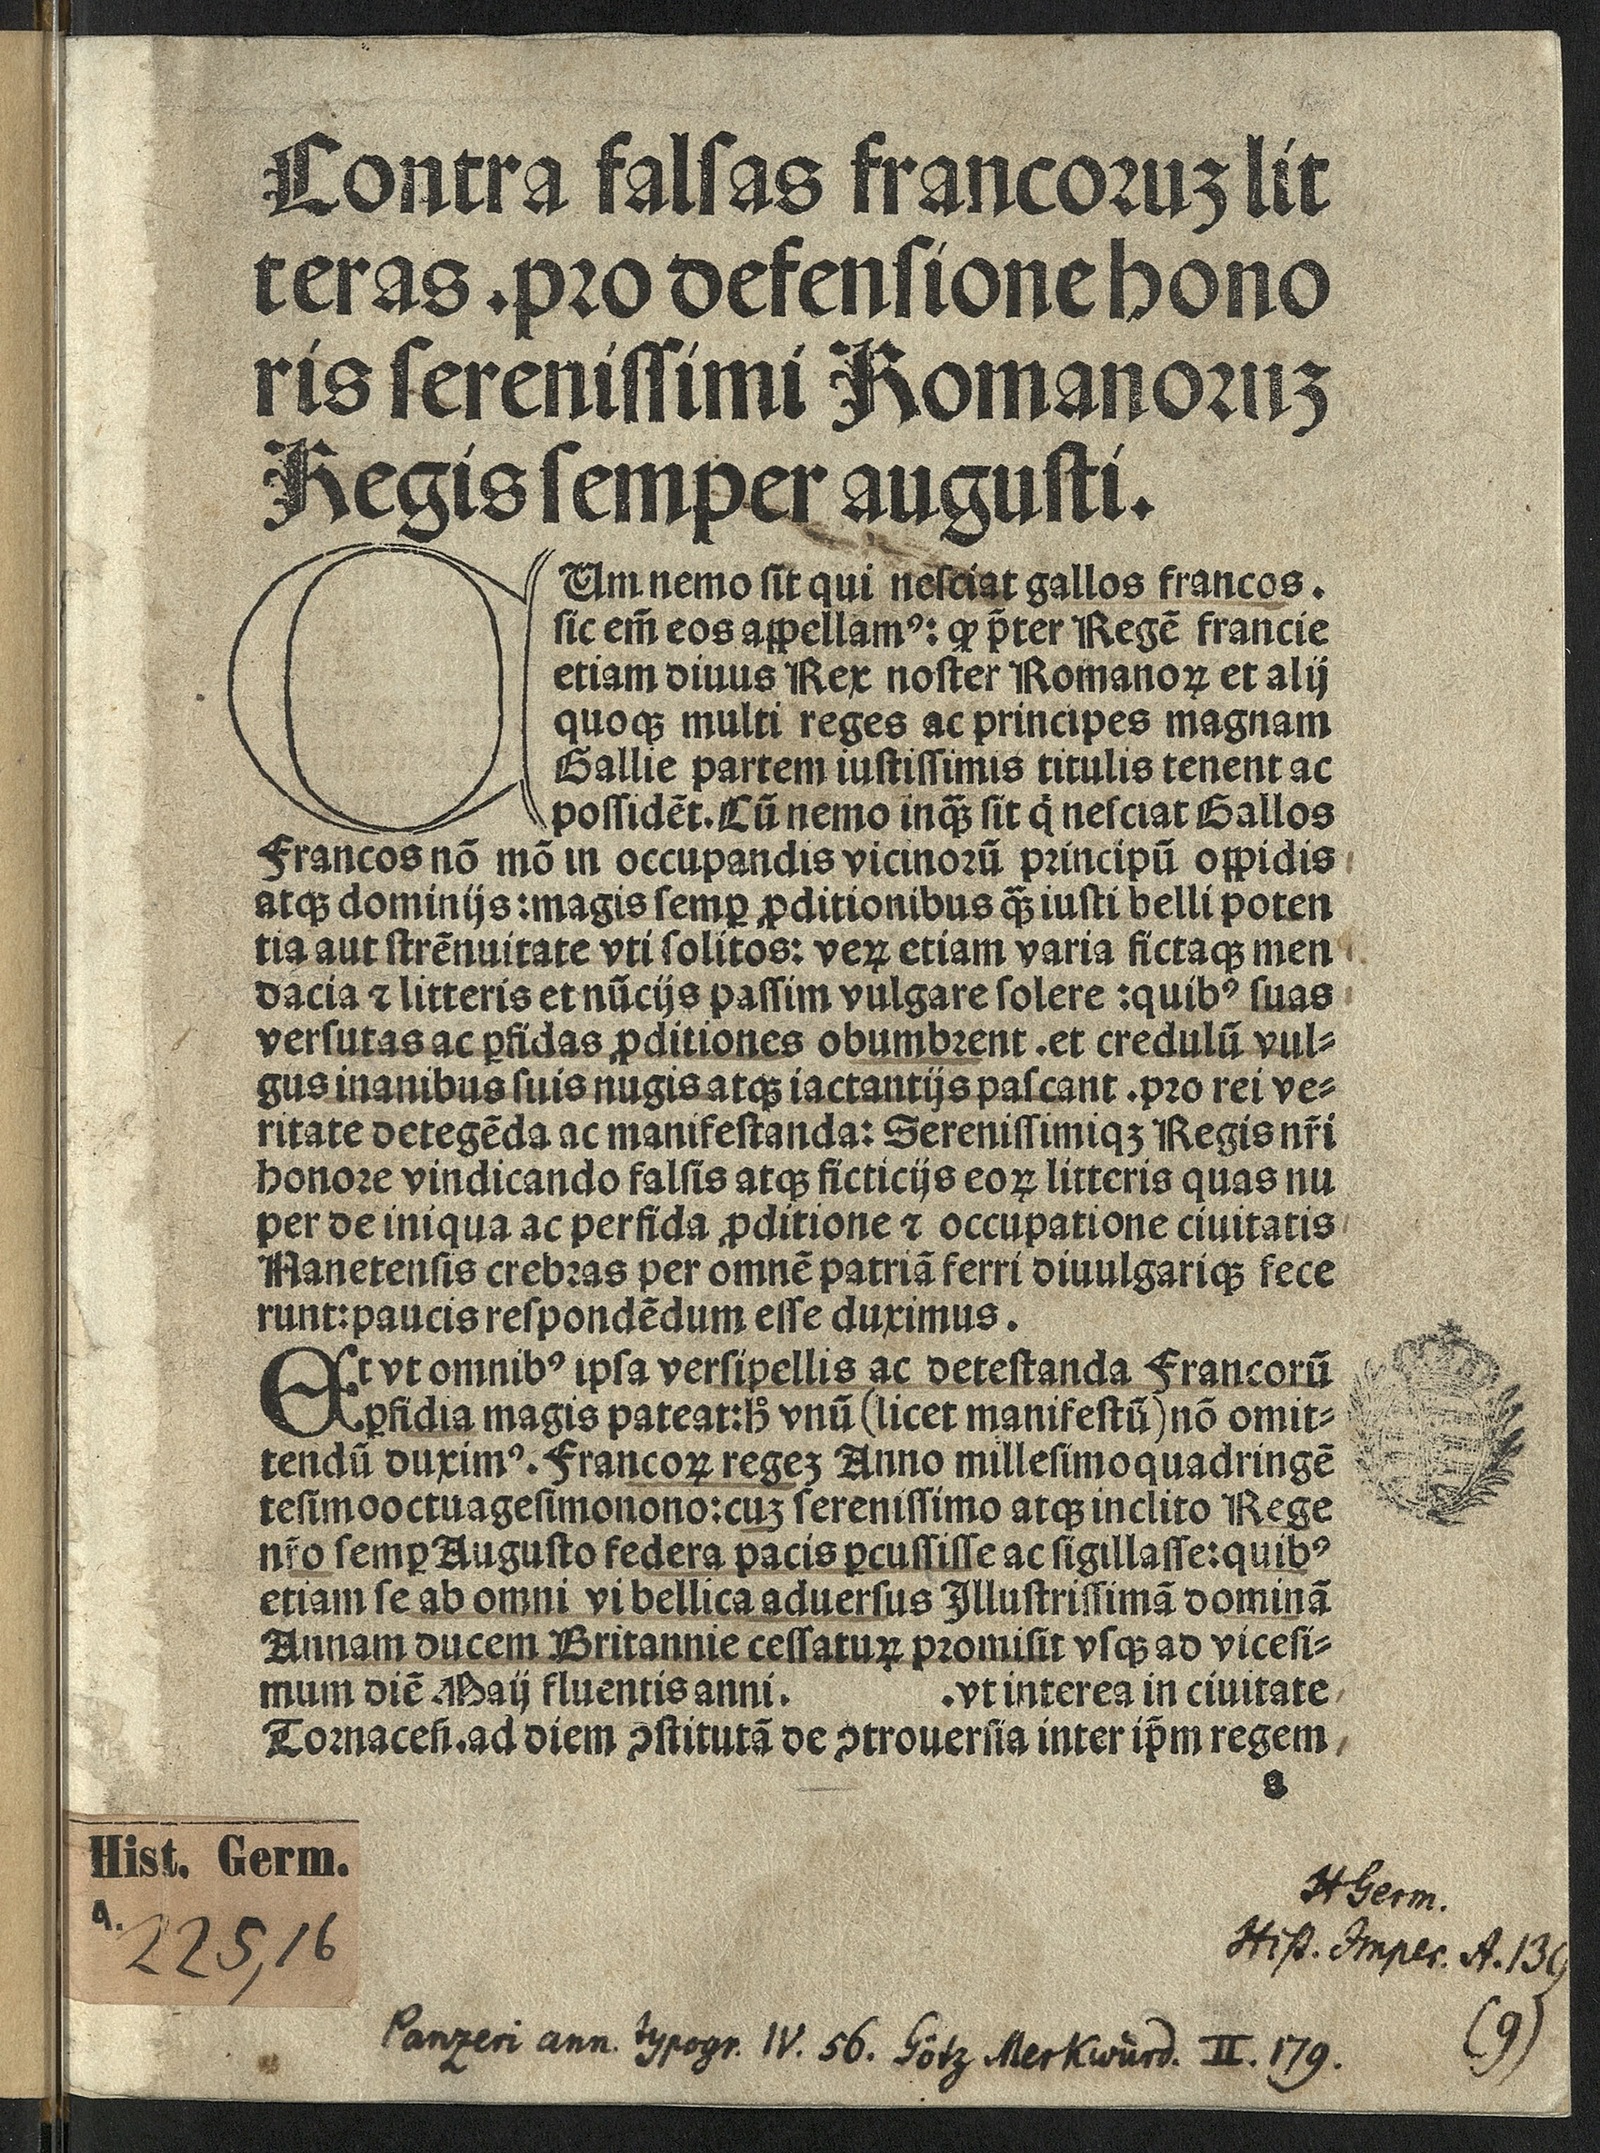 Contra falſas francoꝛuʒ lit
teras .pꝛo defenſione hono
ris ſereniſſimi Romanoꝛuʒ
Regis ſemper auguſti.
CUm nemo ſit qui neſciat gallos francos.
ſic em̃ eos appellamꝰ: qꝛ p̃ter Regẽ francie
etiam diuus Rex noſter Romanoꝝ et alij
quoqꝫ multi reges ac principes magnam
Gallie partem iuſtiſſimis titulis tenent ac
poſſidẽt. Cũ nemo inqꝫ̃ ſit q̇ neſciat Gallos
Francos nõ mõ in occupandis vicinoꝛũ pꝛincipũ oppidis
atqꝫ dominijs: magis ſemꝑ ꝓditionibus qꝫ̃ iuſti belli poten
tia aut ſtrẽnuitate vti ſolitos: veꝝ etiam varia fictaqꝫ men
dacia ⁊ litteris et nũcijs paſſim vulgare ſolere :quibꝰ ſuas
verſutas ac ꝑfidas ꝓditiones obumbꝛent .et credulũ vul⸗
gus inanibus ſuis nugis atqꝫ iactantijs paſcant .pꝛo rei ve⸗
ritate detegẽda ac manifeſtanda: Sereniſſimiqꝫ Regis nr̃i
honoꝛe vindicando falſis atqꝫ ficticijs eoꝝ litteris quas nu
per de iniqua ac perfida ꝓditione ⁊ occupatione ciuitatis
Nanetenſis crebꝛas per omnẽ patriã ferri diuulgariqꝫ fece
runt: paucis reſpondẽdum eſſe duximus.
Et vt omnibꝰ ipſa verſipellis ac deteſtanda Francoꝛũ
ꝑfidia magis pateat: hͦ vnũ (licet manifeſtũ) nõ omit⸗
tendũ duximꝰ. Francoꝝ regeʒ Anno milleſimoquadringẽ
teſimooctuageſimonono: cuʒ ſereniſſimo atqꝫ inclito Rege
nr̃o ſemꝑ Auguſto federa pacis ꝑcuſſiſſe ac ſigillaſſe: quibꝰ
etiam ſe ab omni vi bellica aduerſus Illuſtriſſimã dominã
Annam ducem Britannie ceſſatuꝝ pꝛomiſit vſqꝫ ad viceſi⸗
mum diẽ Maij fluentis anni. .vt interea in ciuitate
Toꝛnaceñ. ad diem ꝯſtitutã de ꝯtrouerſia inter ip̃m regem
a
Hist. Germ.
A.
225,16
H Germ.
Hiſt. Imper. A. 139
(9)
Panzeri ann. typogr. IV. 56. Götz Merkwürd. II. 179.